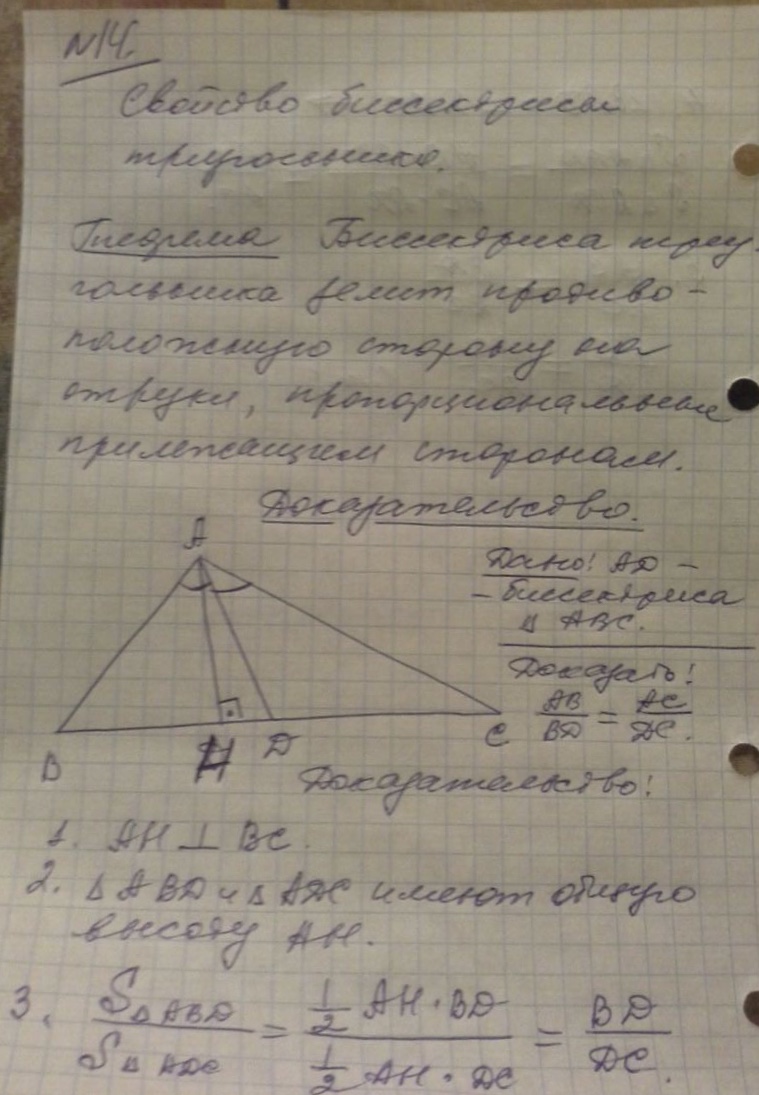 N14.
Свойство биссектрисы
треугольника.
Теорема Биссектриса треу-
гольника делит противо-
положную сторону на
отрезки, пропорциональные
прилежащим сторонам.
Доказательство.
A
Дано: AD -
- биссектриса
Δ ABC.
Доказать:
AB/BD = AC/DC.
B H D C
Доказательство:
1. AH ⊥ BC.
2. Δ ABD и Δ ADC имеют общую
высоту AH.
3. SΔABD/SΔADC = ½ AH · BD / ½ AH · DC = BD/DC.